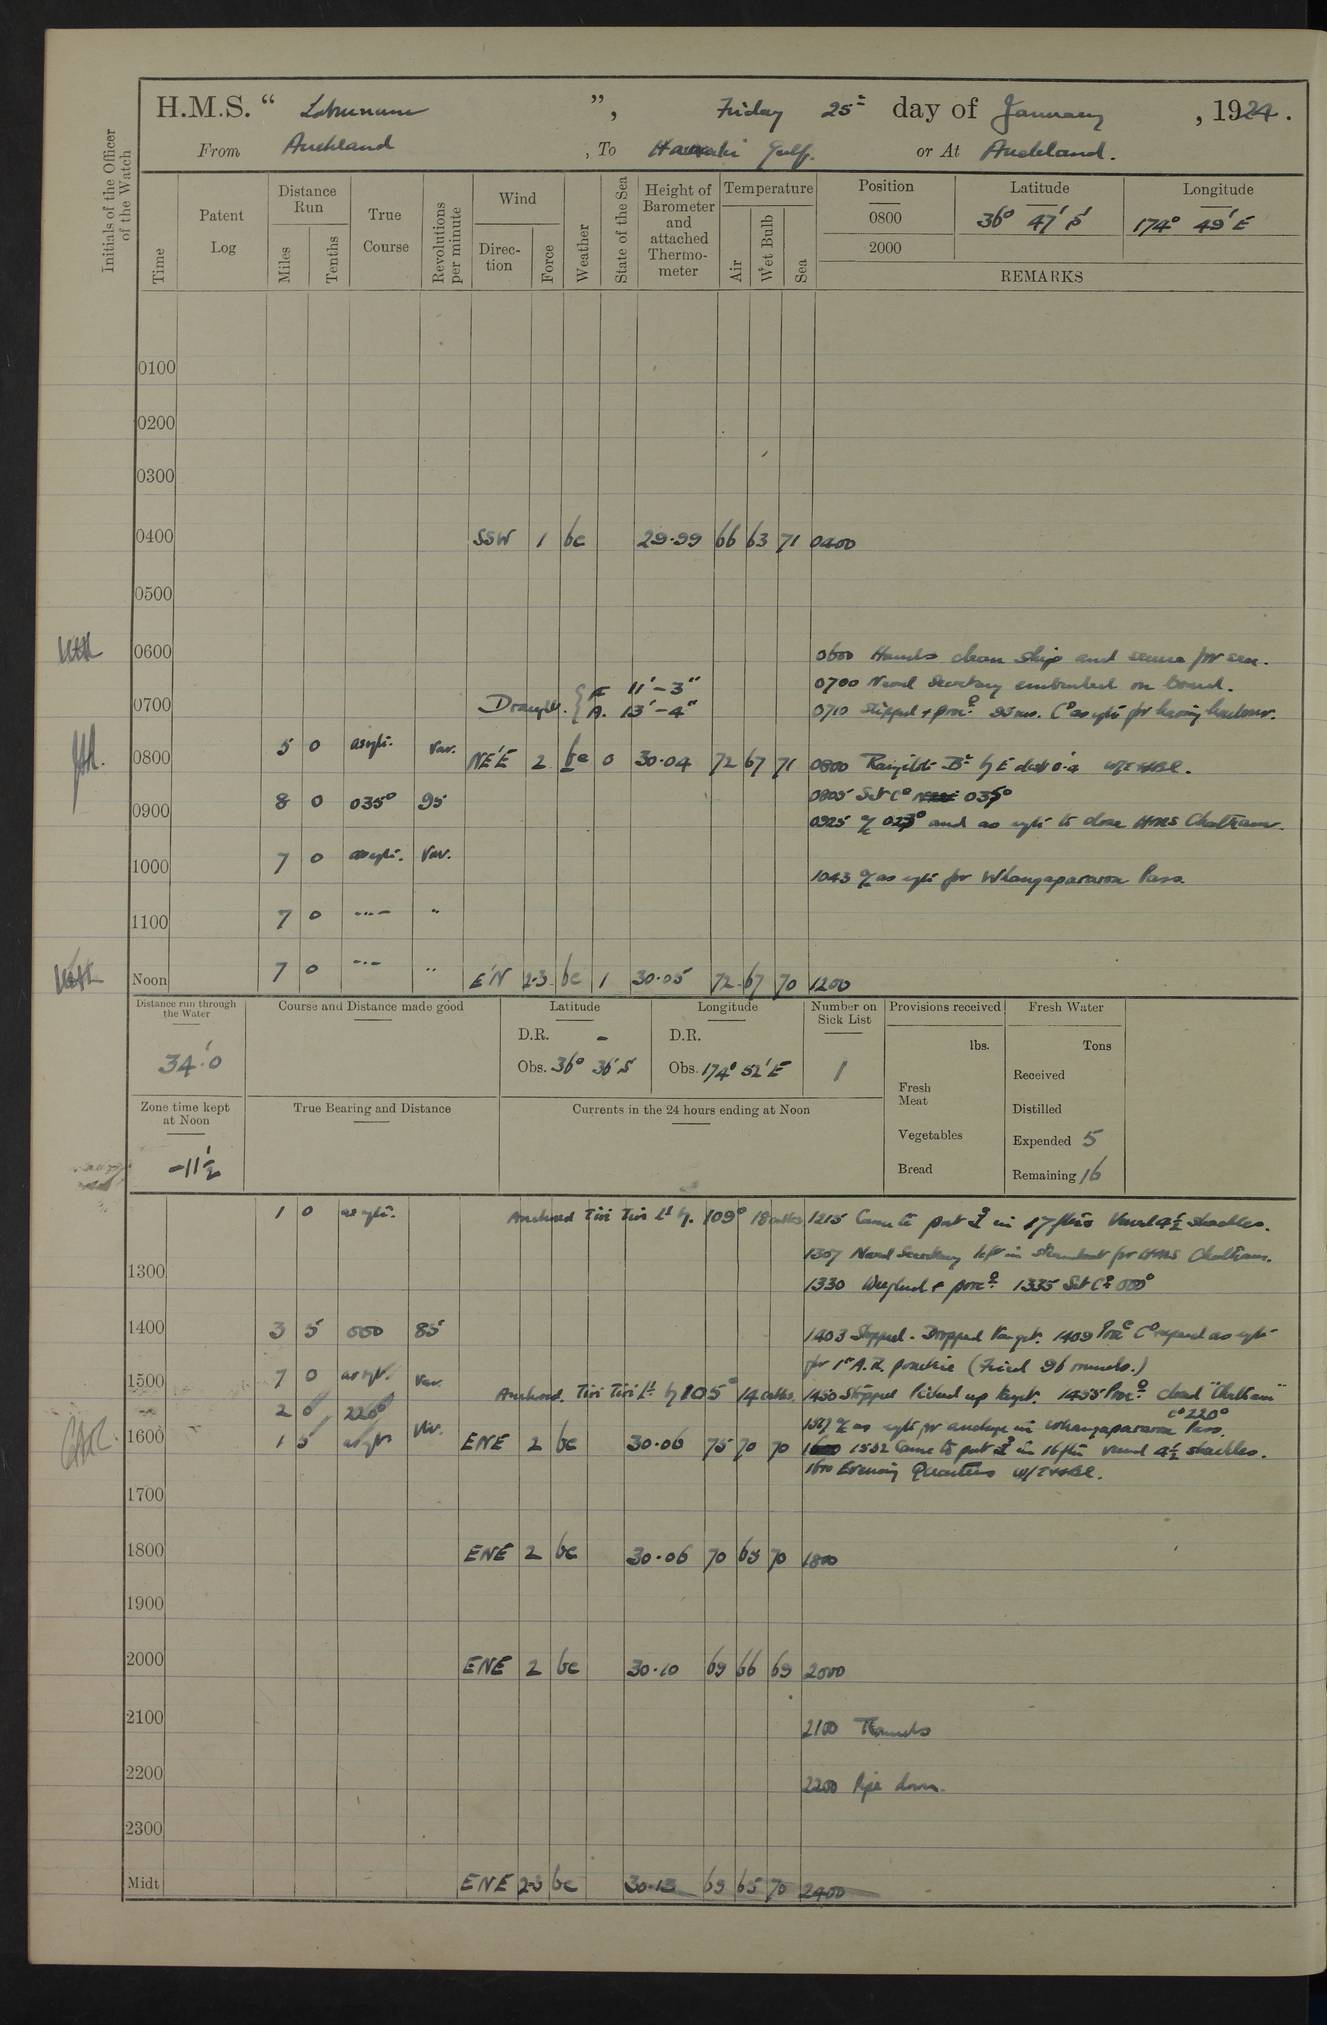 H.M.S. “ Laburnum ”, Friday 25th day of January, 1924.
From Auckland, To Hauraki Gulf. or At Auckland.
Initials of the Officer of the Watch
Time
Patent Log
Distance Run
Miles
Tenths
True Course
Revolutions per minute
Wind
Direction
Force
Weather
State of the Sea
Height of Barometer and attached Thermometer
Temperature
Air
Wet Bulb
Sea
Position Latitude Longitude
0800 36° 47' S 174° 49' E
2000
REMARKS
0100
0200
0300
0400 SSW 1 bc 29.99 66 63 71 0400
0500
0600 0600 Hands clean ship and secure for sea.
0700 Naval Secretary embarked on board.
0700 Draught. { F. 11'-3" A. 13'-4" 0710 Slipped + proc:d 95 revs. Co as req. for leaving harbour.
0800 5 0 as req. Var. NE'E 2 bc 0 30.04 72 67 71 0800 Rangitoto Bn by E dist 0.4
0805 Set Co 035°
0900 8 0 035° 95
0925 a/c 023° and as req. to close HMS Chatham.
1000 7 0 as req. Var.
1043 a/c as req. for Whangaparaoa Pass.
1100 7 0 "
Noon 7 0 " E'N 2-3 bc 1 30.05 72 67 70 1200
Distance run through the Water
34.0
Course and Distance made good
Latitude
D.R. -
Obs. 36° 36' S
Longitude
D.R.
Obs. 174° 52' E
Number on Sick List
1
Provisions received
lbs.
Fresh Meat
Vegetables
Bread
Fresh Water
Tons
Received
Distilled
Expended 5
Remaining 16
Zone time kept at Noon
-11½
True Bearing and Distance
Currents in the 24 hours ending at Noon
1 0 as req. Anchored Tiri Tiri Lt by. 109° 18 cables 1215 Came to port in 17 fms Veered 4½ shackles.
1307 Naval Secretary left in steamboat for HMS Chatham.
1300 1330 Weighed + proc:d 1335 Set Co 050°
1400 3 5 050 85 1403 Stopped. Dropped target. 1409 Proc:d Co + speed as req.
for 1" A.R. practice (Fired 96 rounds.)
1500 7 0 as req. Var. Anchored. Tiri Tiri Lt by 105° 14 cables. 1450 Stopped Picked up target. 1455 Proc:d closed "Chatham"
2 0 220° Co 220°
1527 a/c as req. for anchorage in Whangaparaoa Pass.
1600 1 5 as req. Var. ENE 2 bc 30.06 75 70 70 1552 Came to port in 16 fms veered 4½ shackles.
1600 Evening Quarters
1700
1800 ENE 2 bc 30.06 70 68 70 1800
1900
2000 ENE 2 bc 30.10 69 66 69 2000
2100 2100 Rounds
2200 2200 Pipe down.
2300
Midt ENE 2-3 bc 30.13 69 65 70 2400